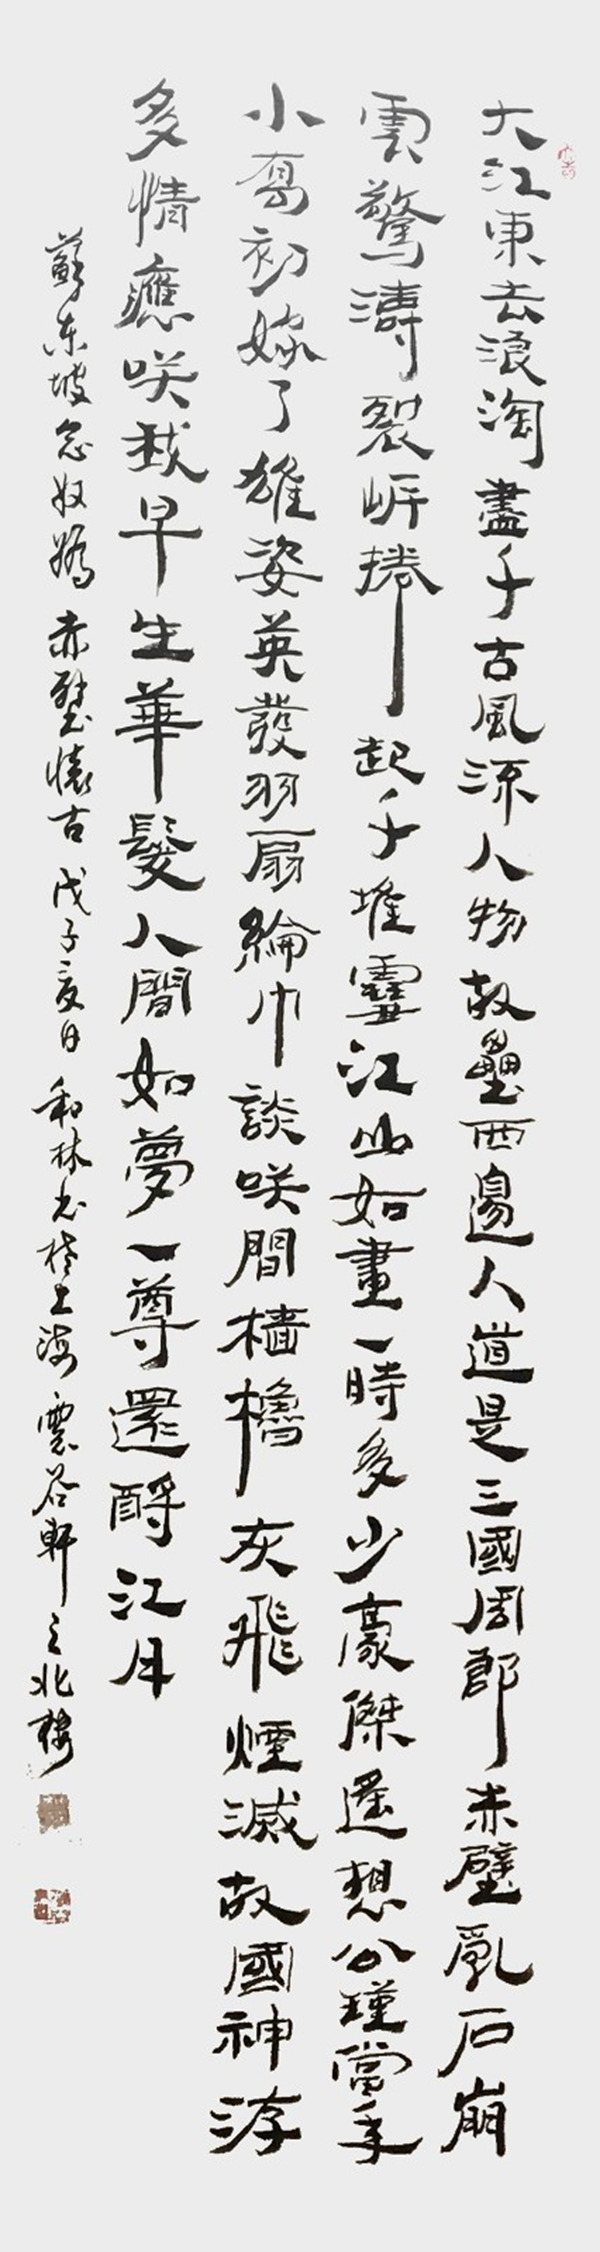 大江東去浪淘盡千古風流人物故壘西邊人道是三國周郎赤壁亂石崩
雲驚濤裂岸捲起千堆雪江山如畫一時多少豪傑遙想公瑾當年
小喬初嫁了雄姿英發羽扇綸巾談咲間檣櫓灰飛煙滅故國神游
多情應咲我早生華髮人間如夢一尊還酹江月
蘇东坡念奴嬌赤壁懷古戊子夏日和林书於上海雲谷軒之北樓